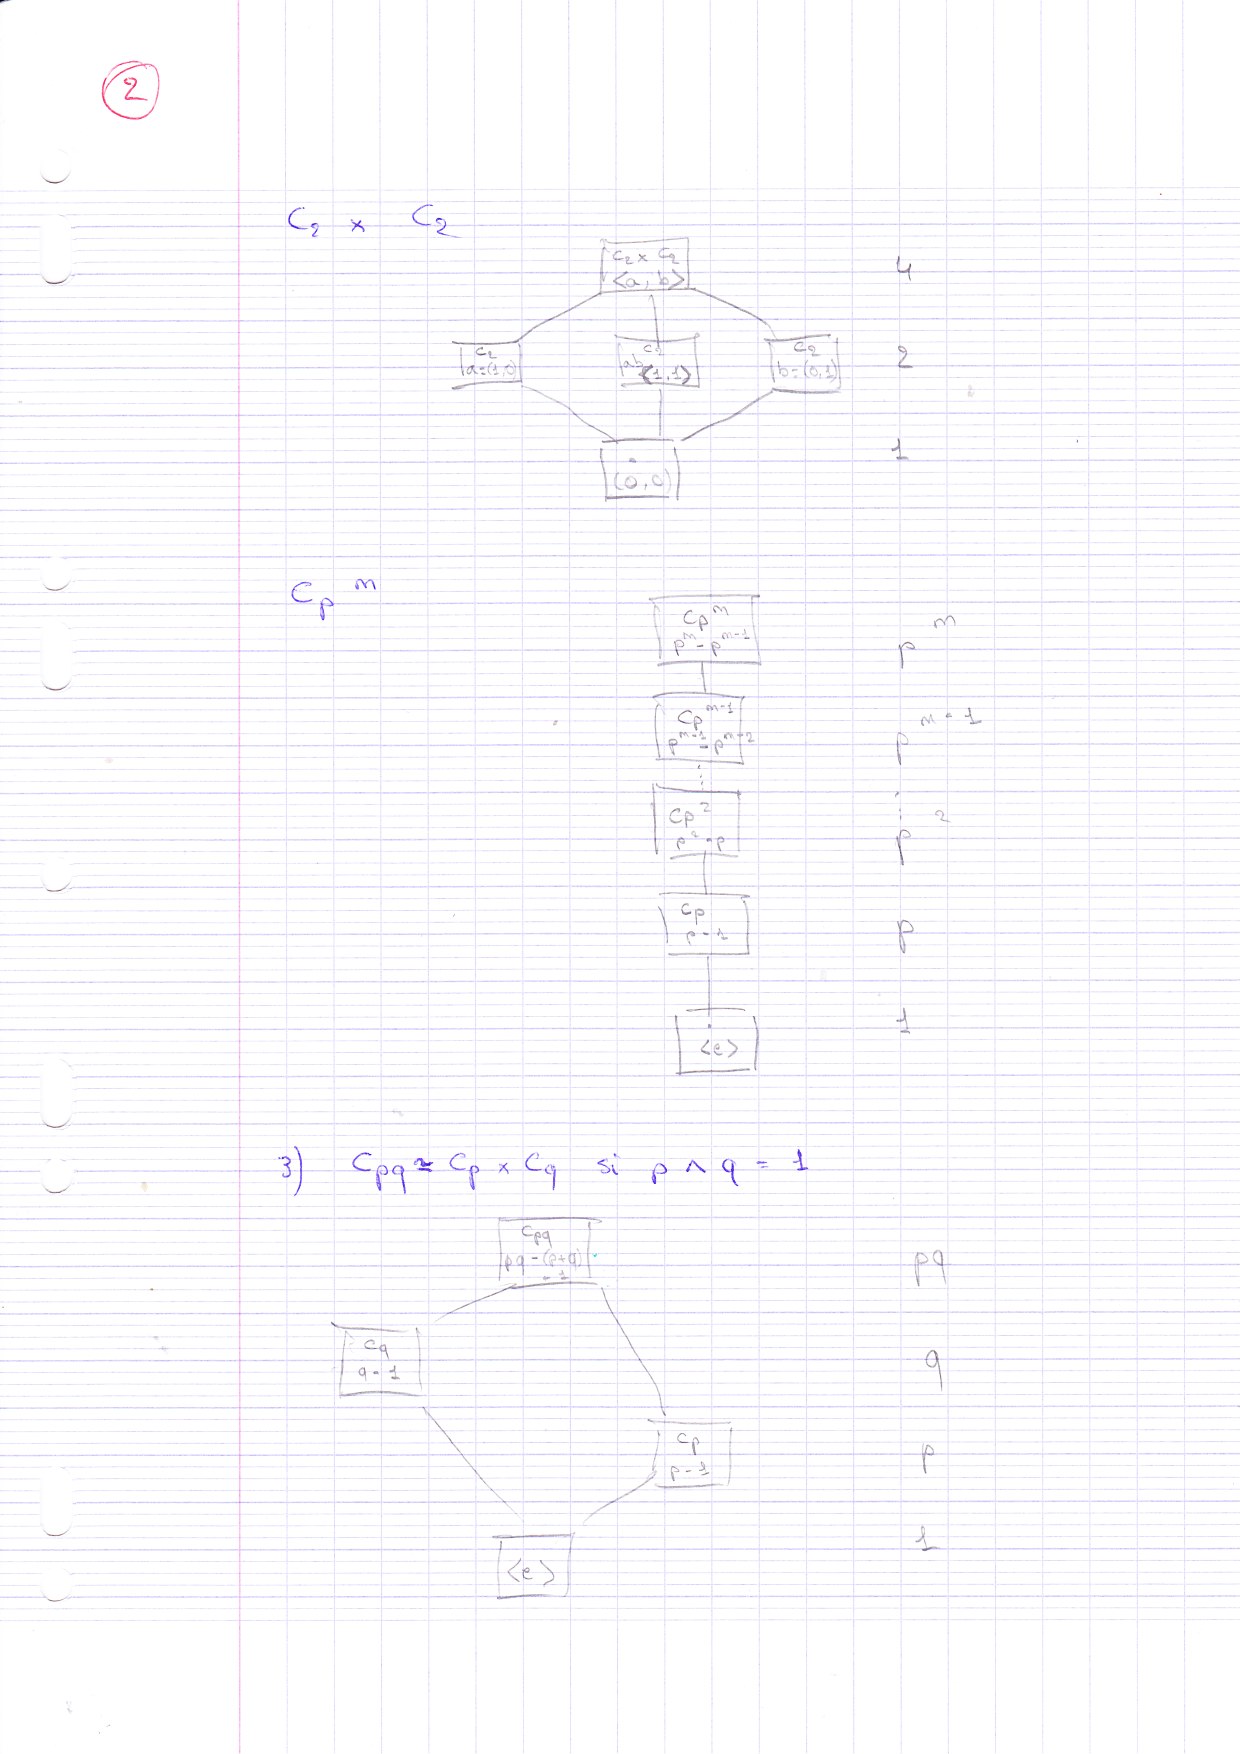 2
C₂ × C₂
C₂ × C₂
<a, b>
4
C₂
a=(1,0)
C₂
ab
(1,1)
C₂
b=(0,1)
2
(0,0)
1
Cp^m
Cp^m
p^m - p^m-1
p^m
Cp^m-1
p^m-1 - p^m-2
p^m-1
Cp²
p² - p
p²
Cp
p-1
p
<e>
1
3) Cpq ≃ Cp × Cq si p ∧ q = 1
Cpq
pq - (p+q)
- 1
pq
Cq
q - 1
q
Cp
p - 1
p
<e>
1